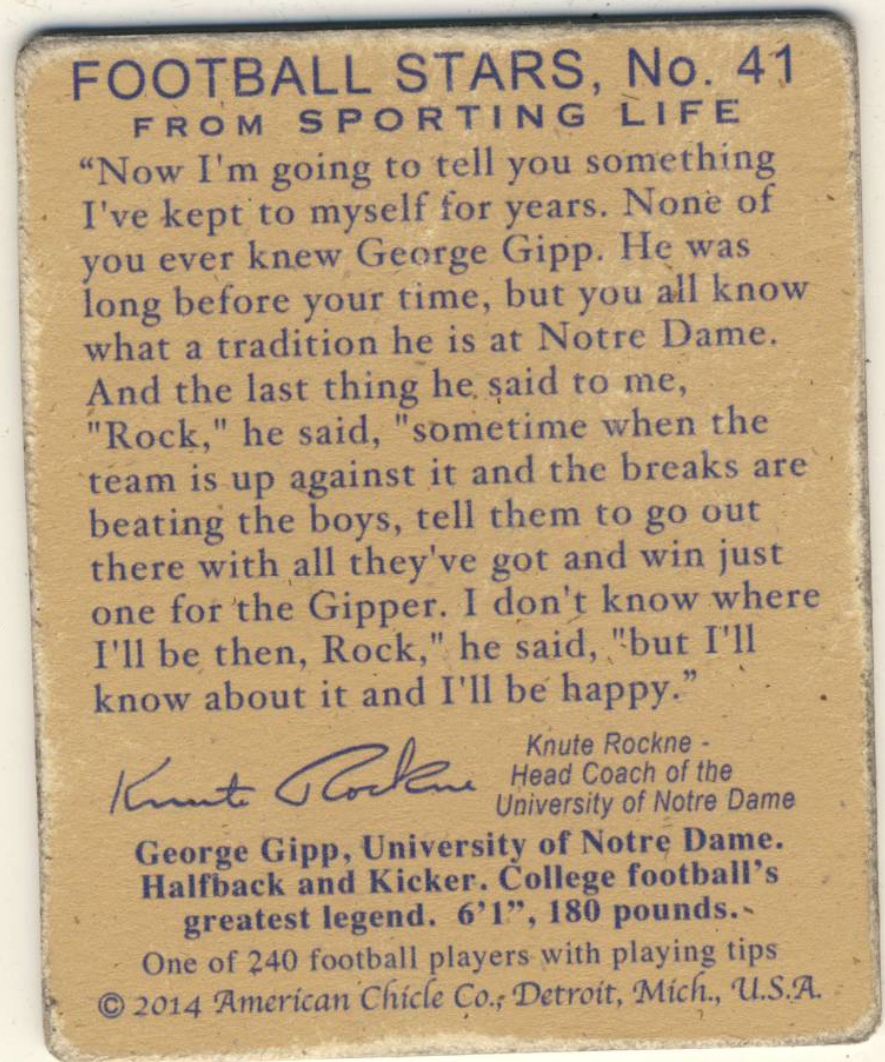 FOOTBALL STARS, No. 41
FROM SPORTING LIFE
“Now I'm going to tell you something
I've kept to myself for years. None of
you ever knew George Gipp. He was
long before your time, but you all know
what a tradition he is at Notre Dame.
And the last thing he said to me,
"Rock," he said, "sometime when the
team is up against it and the breaks are
beating the boys, tell them to go out
there with all they've got and win just
one for the Gipper. I don't know where
I'll be then, Rock," he said, "but I'll
know about it and I'll be happy.”
Knute Rockne
Knute Rockne -
Head Coach of the
University of Notre Dame
George Gipp, University of Notre Dame.
Halfback and Kicker. College football's
greatest legend. 6'1”, 180 pounds.
One of 240 football players with playing tips
© 2014 American Chicle Co., Detroit, Mich., U.S.A.